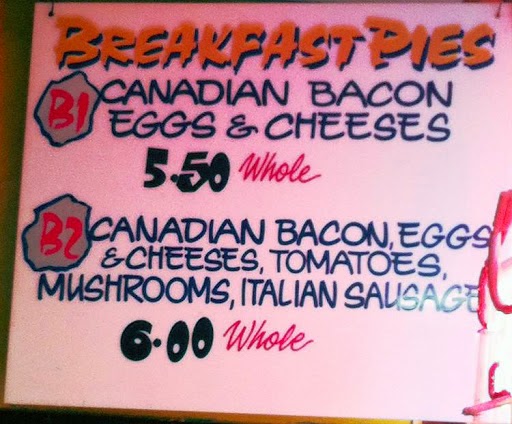 BREAKFAST PIES
B1 CANADIAN BACON
EGGS & CHEESES
5.50 Whole
B2 CANADIAN BACON, EGGS
& CHEESES, TOMATOES,
MUSHROOMS, ITALIAN SAUSAGE
6.00 Whole